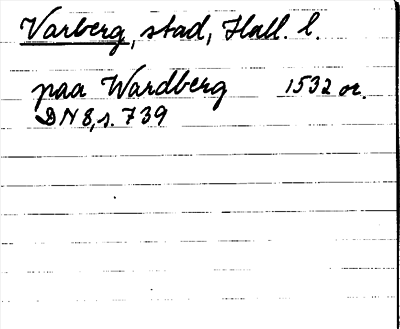 Varberg, stad, Hall. l.
paa Wardberg 1532 or.
DN 8, s. 739